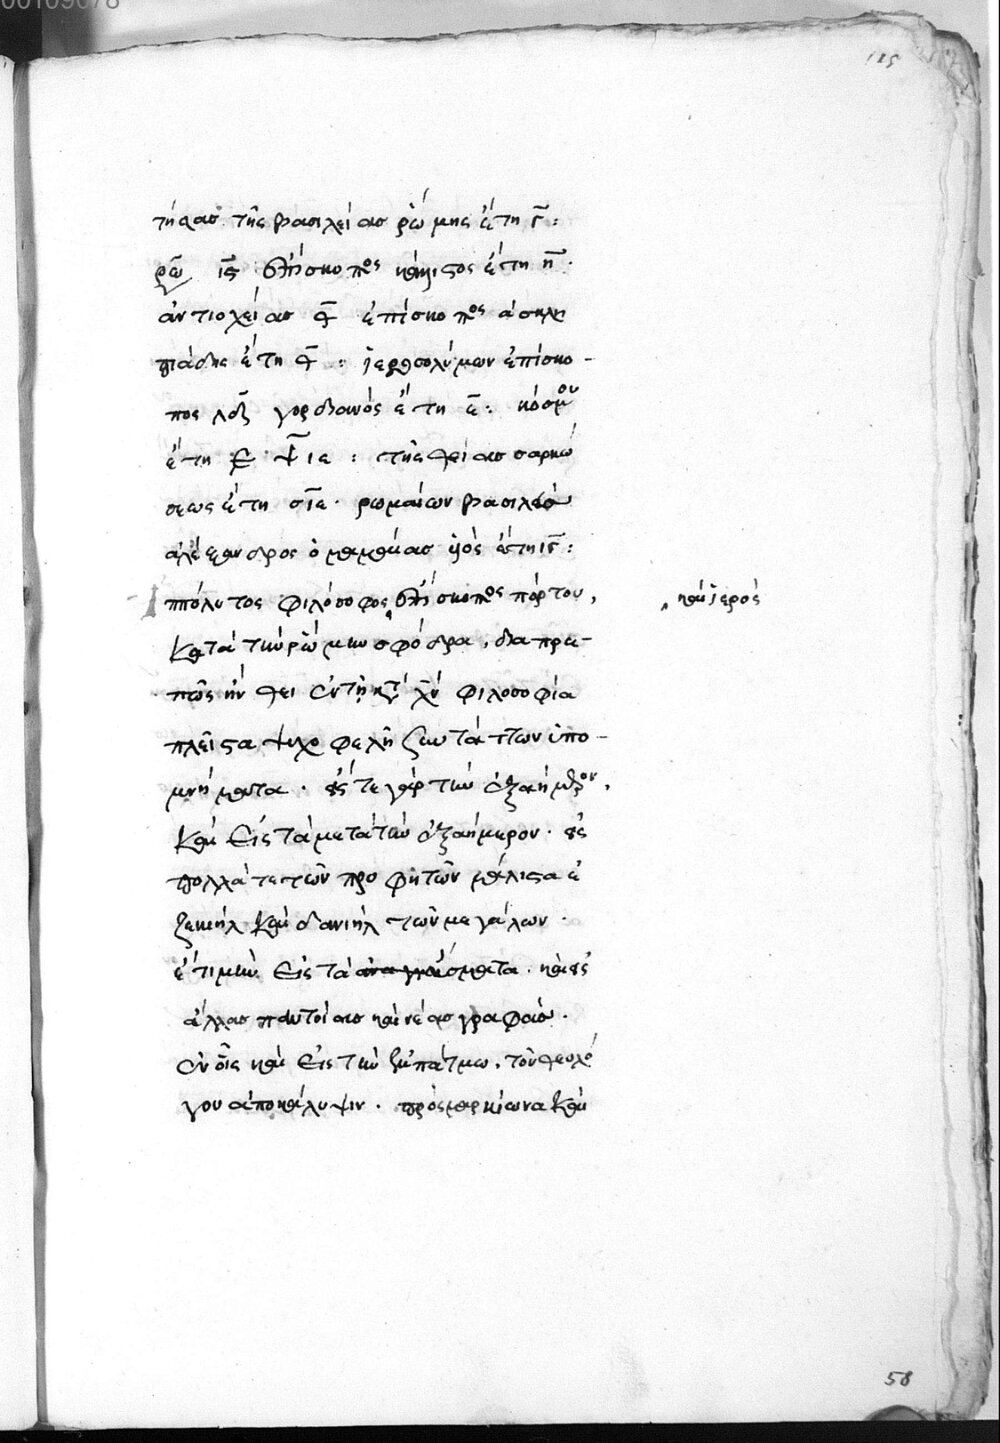 115
τήρας τῆς βασιλείας ῥώμης ἔτη γ̅:
ρω̅ ις̅ ἐπίσκοπος κάλιστος ἔτη η̅.
ἀντιοχείας θ̅ ἐπίσκοπος ἀσκλη
πιάδης ἔτη θ̅: ἱεροσολύμων ἐπίσκο-
πος λδ̅ γορδιανός ἔτη ε̅: κόσμου
ἔτη ͵ε ψ̅ιε: τῆς θείας σαρκώ
σεως ἔτη σι̅ε. ῥωμαίων βασιλεὺς
ἀλέξανδρος ὁ μαμαίας υἱὸς ἔτη ιγ̅:
Ἱππόλυτος φιλόσοφος, ἐπίσκοπος πόρτου,
καὶ ἱερὸς
κατὰ τὴν ῥώμην σφόδρα, διαπρε-
πῶς ἤνθει ἐν τῇ κατὰ χν̅ φιλοσοφία
πλεῖστα ψυχοφελῆ συντάττων ὑπο-
μνήματα. εἴς τε γὰρ τὴν ἑξαήμερον,
Καὶ εἰς τὰ μετὰ τὴν ἑξαήμερον. εἰς
πολλά τε τῶν προφητῶν μάλιστα ἐ
ζεκιὴλ καὶ δανιὴλ τῶν μεγάλων.
ἔτι μὴν εἰς τὰ ἄσματα. καὶ εἰς
ἄλλας παντοίας καὶ νέας γραφάς.
ἐν οἷς καὶ εἰς τὴν ἐν πάτμω, τοῦ θεολό
γου ἀποκάλυψιν. πρὸς μαρκίωνα καὶ
58